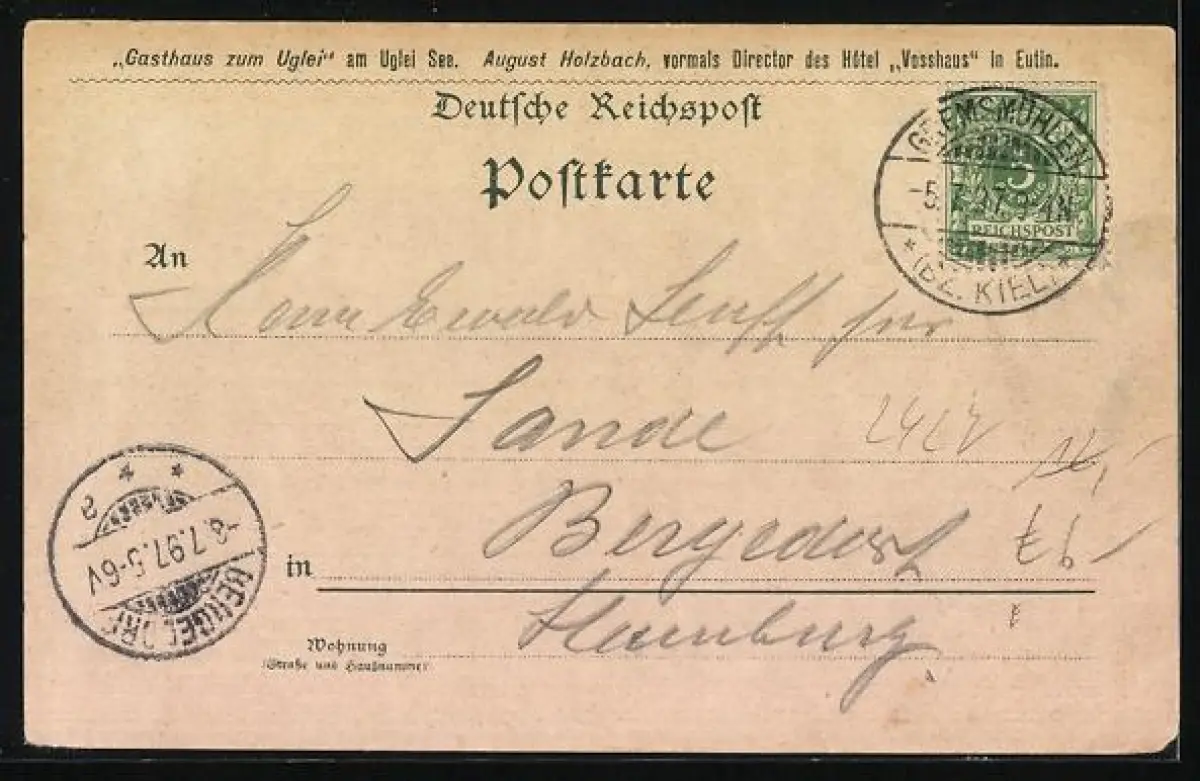 „Gasthaus zum Uglei“ am Uglei See. August Holzbach, vormals Director des Hôtel „Vosshaus“ in Eutin.
Deutsche Reichspost
Postkarte
GREMSMÜHLEN
5.7.97.
* (BZ. KIEL) *
5
REICHSPOST
An
Ewald
Sande
Bergedorf
in
Hamburg
97
Wohnung
(Straße und Hausnummer)
* *
a
7.97.5-6V
BERGEDORF